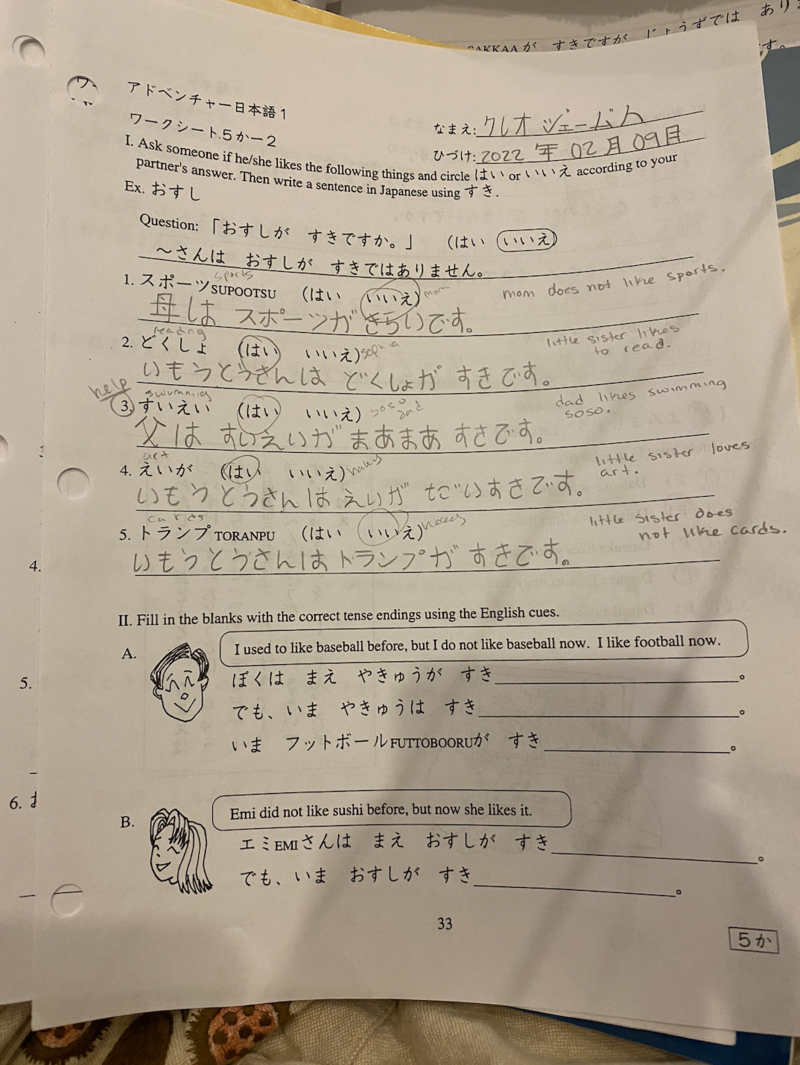 AKKAAが すきですが じょうずでは あり
す。
アドベンチャー日本語1
ワークシート5か−2
なまえ: クレオ
ひづけ: 2022年02月09日
I. Ask someone if he/she likes the following things and circle はい or いいえ according to your
partner's answer. Then write a sentence in Japanese using すき.
Ex. おすし
Question: 「おすしが すきですか。」 (はい いいえ)
〜さんは おすしが すきではありません。
sports
1. スポーツSUPOOTSU (はい いいえ) mom
mom does not like sports.
母は スポーツが きらいです。
reading
2. どくしょ (はい いいえ)
little sister likes
to read.
いもうとうさんは どくしょが すきです。
help
swimming
3. すいえい (はい いいえ) soso dad
dad likes swimming
soso.
父は すいえいが まあまあ すきです。
art
4. えいが (はい いいえ)
little sister loves
art.
いもうとうさんは えいが だいすきです。
cards
5. トランプTORANPU (はい いいえ)
little sister does
not like cards.
いもうとうさんは トランプが すきです。
II. Fill in the blanks with the correct tense endings using the English cues.
A.
I used to like baseball before, but I do not like baseball now. I like football now.
ぼくは まえ やきゅうが すき。
でも、いま やきゅうは すき。
いま フットボールFUTTOBOORUが すき。
B.
Emi did not like sushi before, but now she likes it.
エミEMIさんは まえ おすしが すき。
でも、いま おすしが すき。
33
5か
4.
5.
6.